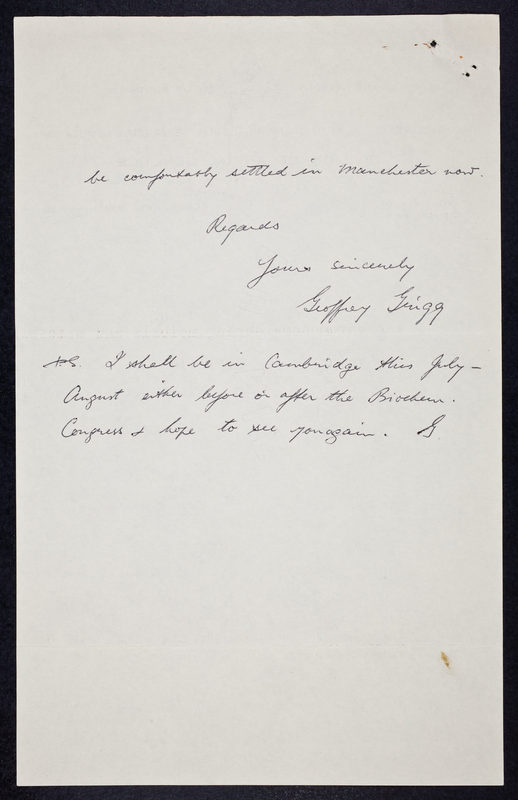 be comfortably settled in Manchester now.
Regards
Yours sincerely
Geoffrey Grigg
P.S. I shall be in Cambridge this July –
August either before or after the Biochem.
Congress & hope to see you again. G